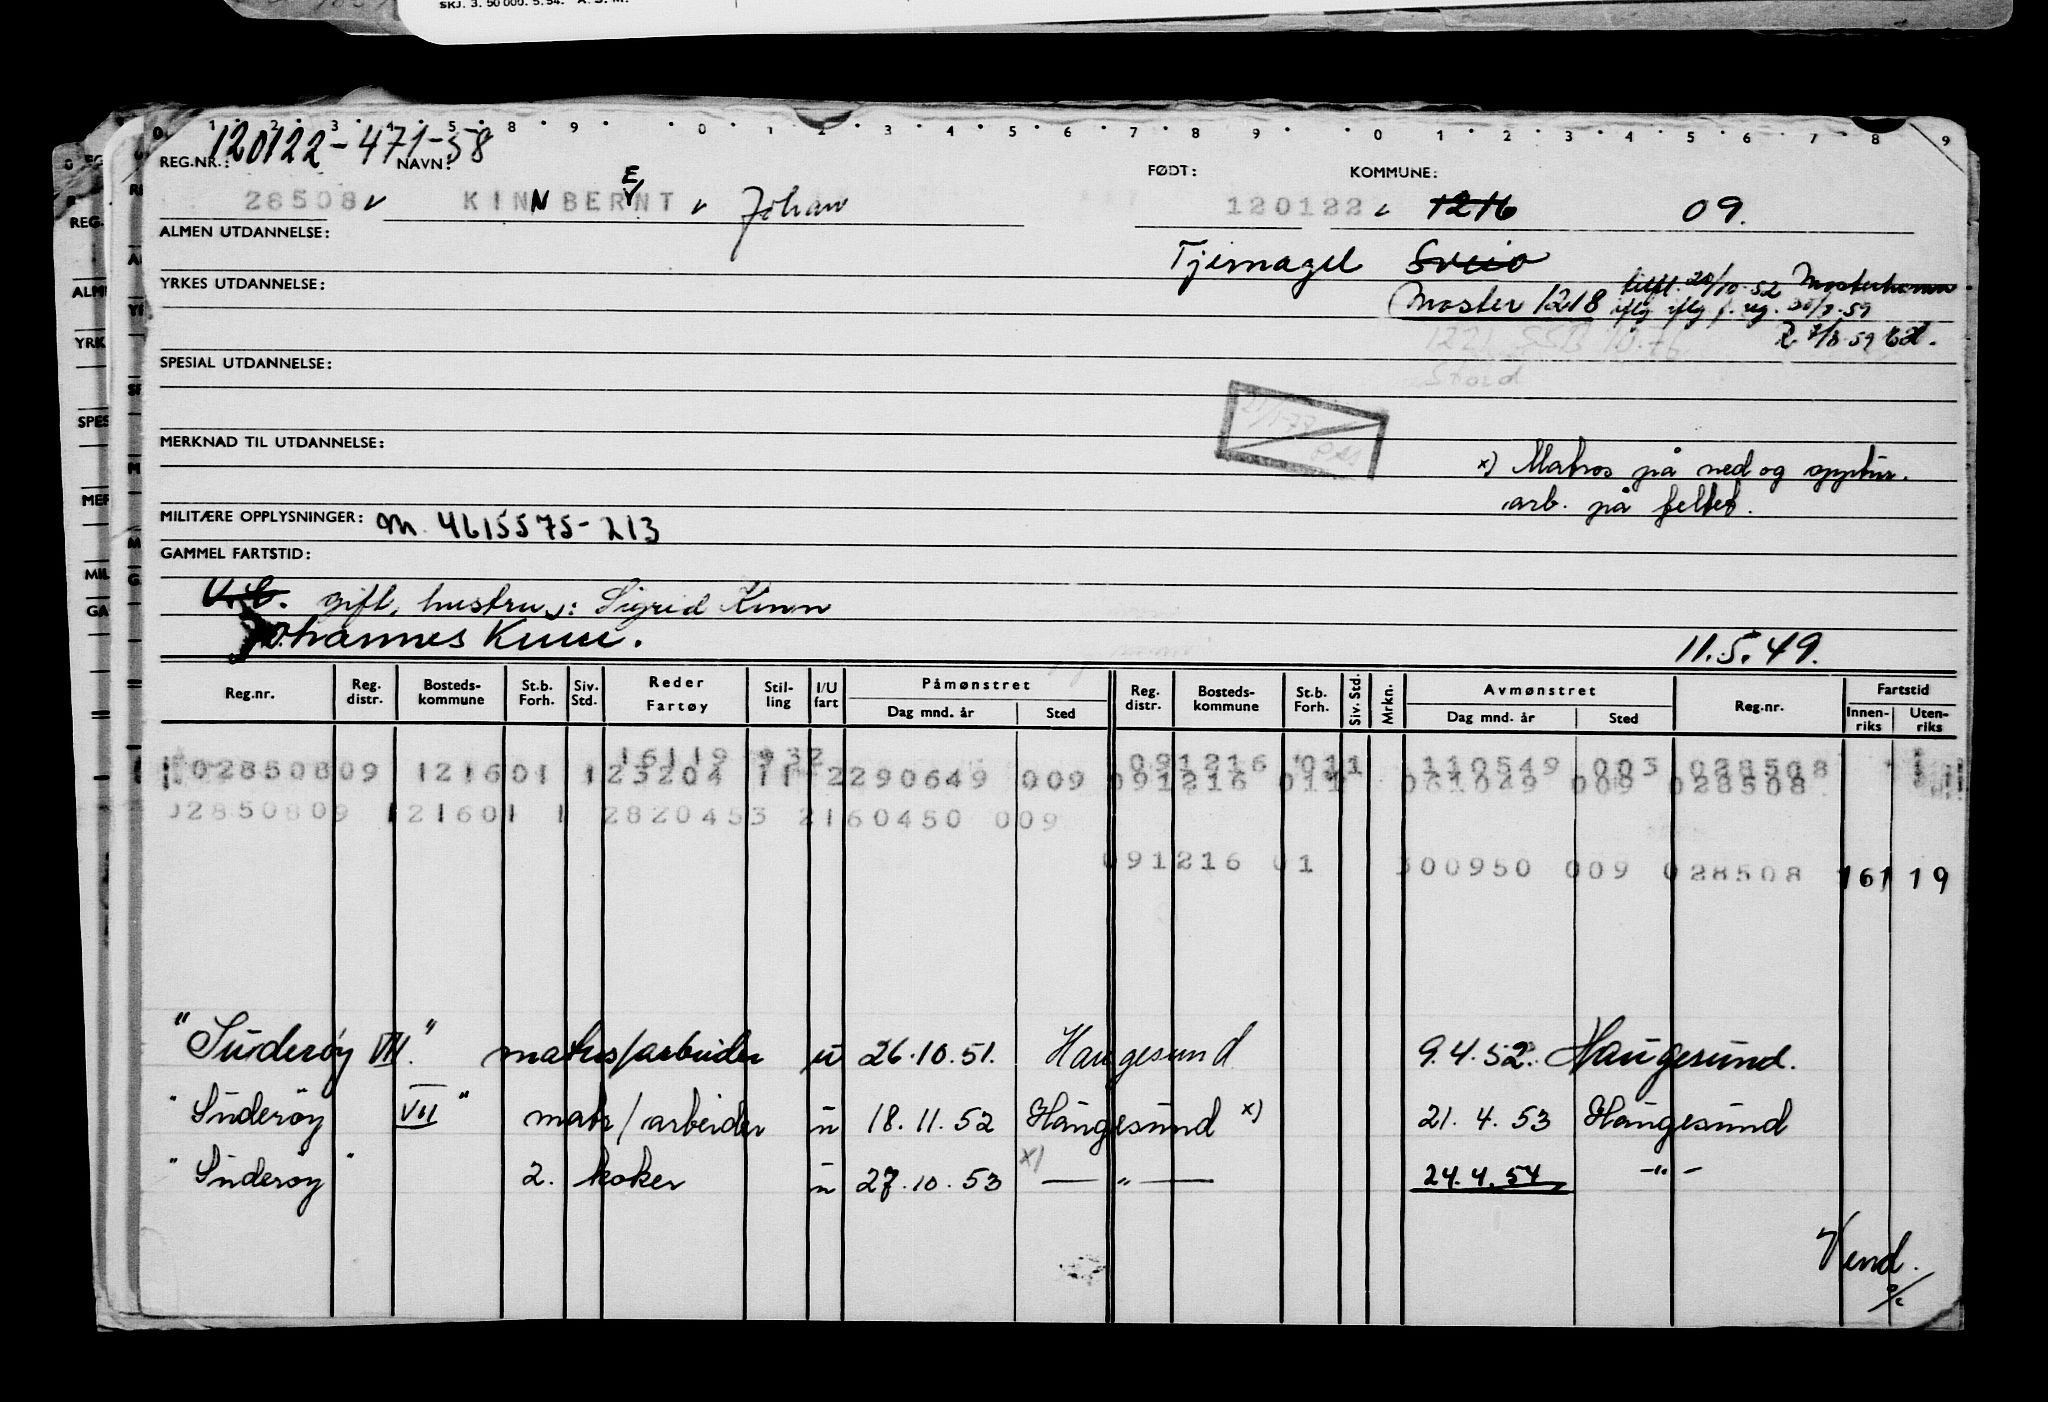 SKJ. 3. 50 000. 5. 54. A. S. M.
120122-471-58
REG.NR.: NAVN: FØDT: KOMMUNE:
28508 KINN BERENT Johan 120122 1216 09.
ALMEN UTDANNELSE:
Tjernagel Sveio
YRKES UTDANNELSE:
Moster 1218 20/10.52 Mosterhamn
iflg f. reg. 30/7.59
1221 SSB 10.76
SPESIAL UTDANNELSE:
Stord
MERKNAD TIL UTDANNELSE:
x) Matros på ned og opptur.
arb. på feltet.
MILITÆRE OPPLYSNINGER: M. 4615575-213
GAMMEL FARTSTID:
U.G. gift, hustru: Sigrid Kinn
Johannes Kinn. 11.5.49.
Reg.nr. Reg. distr. Bosteds-kommune St.b. Forh. Siv. Std. Reder Fartøy Stil-ling I/U fart Påmønstret Dag mnd. år Sted Reg. distr. Bosteds-kommune St.b. Forh. Siv. Std. Mrkn. Avmønstret Dag mnd. år Sted Reg.nr. Fartstid Innen-riks Uten-riks
16119 932 091216 011 110549 003 028508
02850809 121601 1 23204 11 2290649 009 091216 011 061049 009 028508
02850809 121601 1 2820453 2160450 009
091216 01 300950 009 028508 161 19
"Suderøy VIII." matros/arbeider u 26.10.51. Haugesund 9.4.52. Haugesund.
"Suderøy VII" matr/arbeider u 18.11.52 Haugesund x) 21.4.53 Haugesund
"Suderøy" 2. koker u 27.10.53 x) — " — 24.4.54 — " —
Vend.